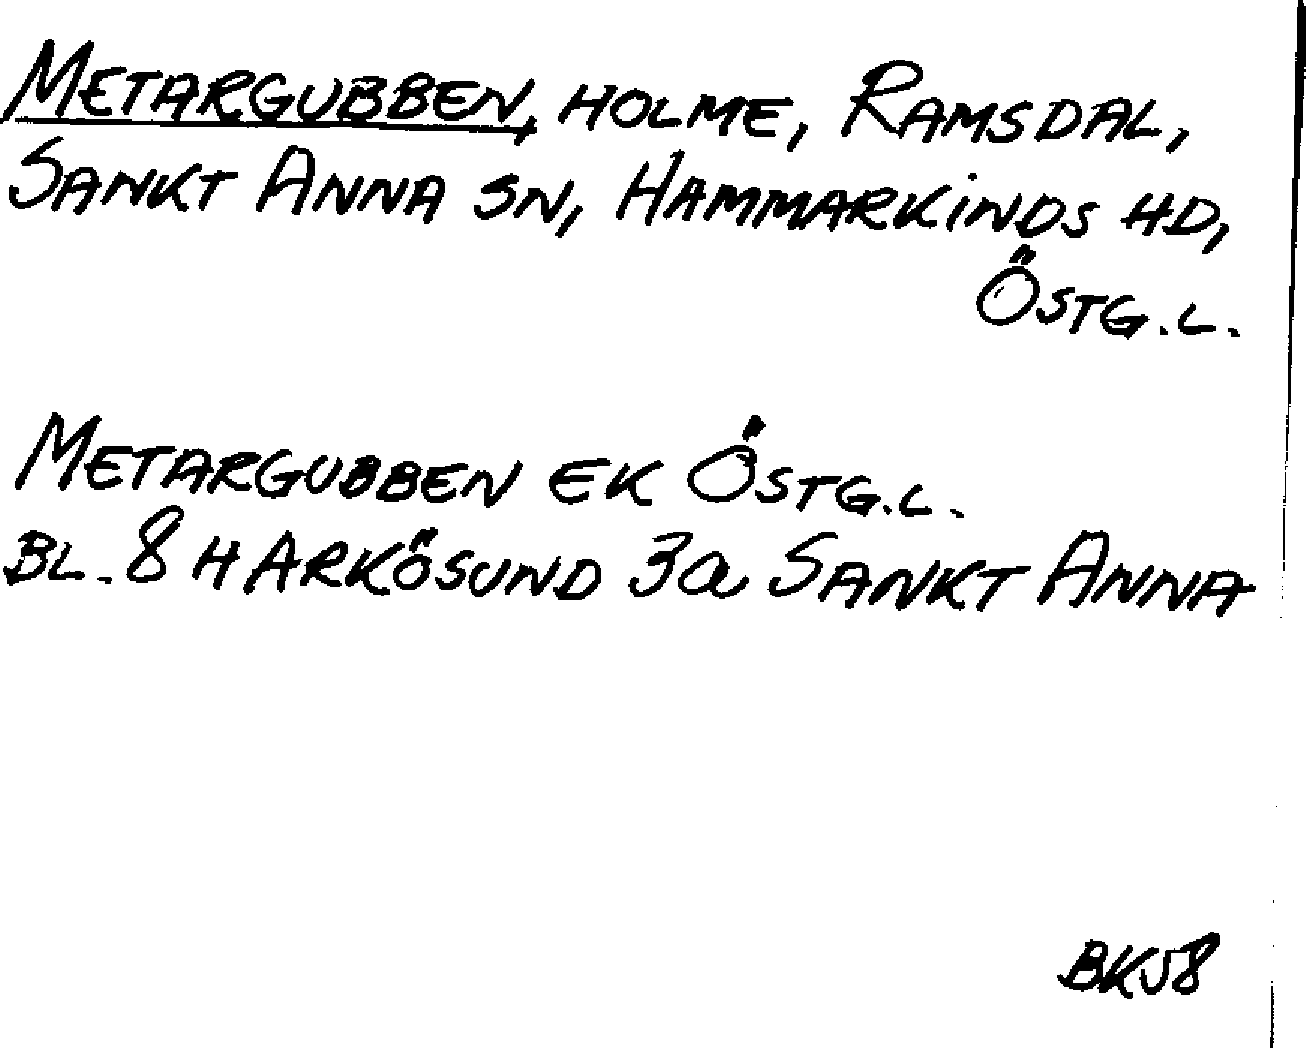 METARGUBBEN, HOLME, RAMSDAL,
SANKT ANNA SN, HAMMARKINDS HD,
ÖSTG.L.
METARGUBBEN EK ÖSTG.L.
BL. 8 HARKÖSUND 3a SANKT ANNA
BK58